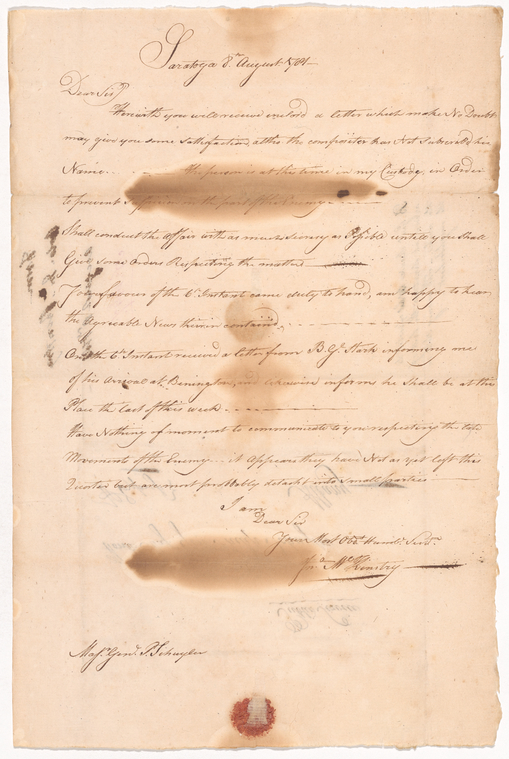 Saratoga 8th August 1781
Dear Sir
Herewith you will receive inclosd a letter which make No Doubt
may give you some Satisfaction, altho the compositor has Not Subscribd his
Name. the person is at this time in my Custody, in Order
to prevent in the part of the Enemy
Shall conduct the affair with as much secrecy as Possible untill you Shall
Give Some Orders Respecting the matter
Your favour of the 6th Instant came duly to hand, am happy to hear
the Agreable News therein contained,
On the 6th Instant received a letter from B. Gl Stark informing me
of his Arrival at Benington, and likewise inform he Shall be at this
Place the last of this week
Have Nothing of moment to communicate to you respecting the
Movements of the Enemy it Appears they have Not as yet left this
Quarter but are most probably detacht into Small parties
I am
Dear Sir
Your Most Obt Humbl Servt
Majr Genrl P. Schuyler